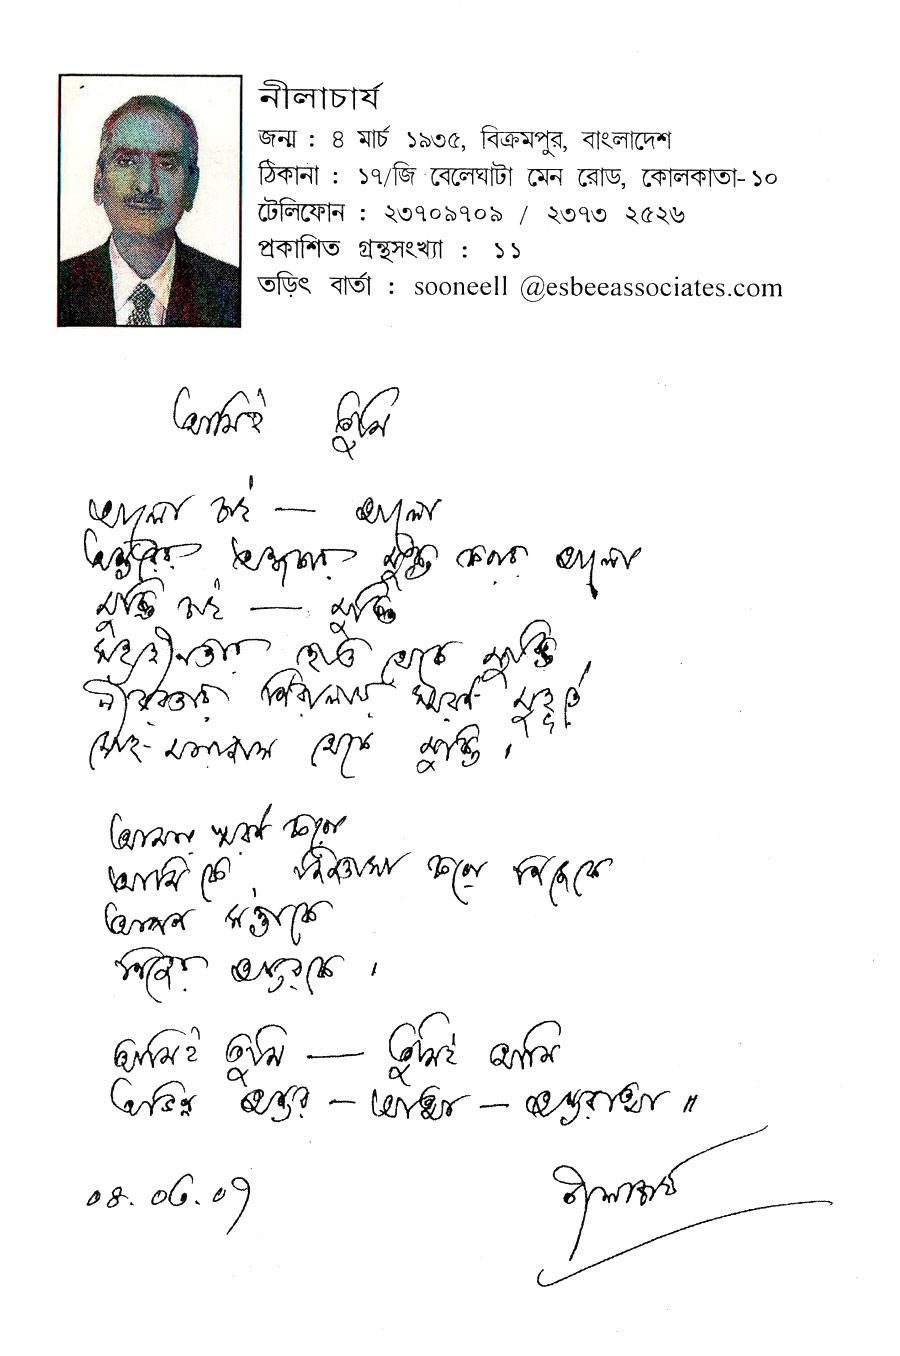 নীলাচার্য
জন্ম : ৪ মার্চ ১৯৩৫, বিক্রমপুর, বাংলাদেশ
ঠিকানা : ১৭/জি বেলেঘাটা মেন রোড, কোলকাতা-১০
টেলিফোন : ২৩৭০৯৭০৯ / ২৩৭৩ ২৫২৬
প্রকাশিত গ্রন্থসংখ্যা : ১১
তড়িৎ বার্তা : sooneell @esbeeassociates.com
আমিই তুমি
আলো চাই — আলো
অন্তরের অন্ধকার মুক্ত করার আলো
মুক্তি চাই — মুক্তি
থেকে মুক্তি
নীরবতার নিরালায় স্মরণ মুহূর্তে
মোহ- থেকে মুক্তি ।
আমার স্মরণ করো
আমি কে, জিজ্ঞাসা করো নিজেকে
আপন সত্তাকে
নিজের অন্তরকে ।
আমিই তুমি — তুমিই আমি
অভিন্ন অন্তর – আত্মা – অন্তরাত্মা ॥
০৪.০৩.০৭
নীলাচার্য